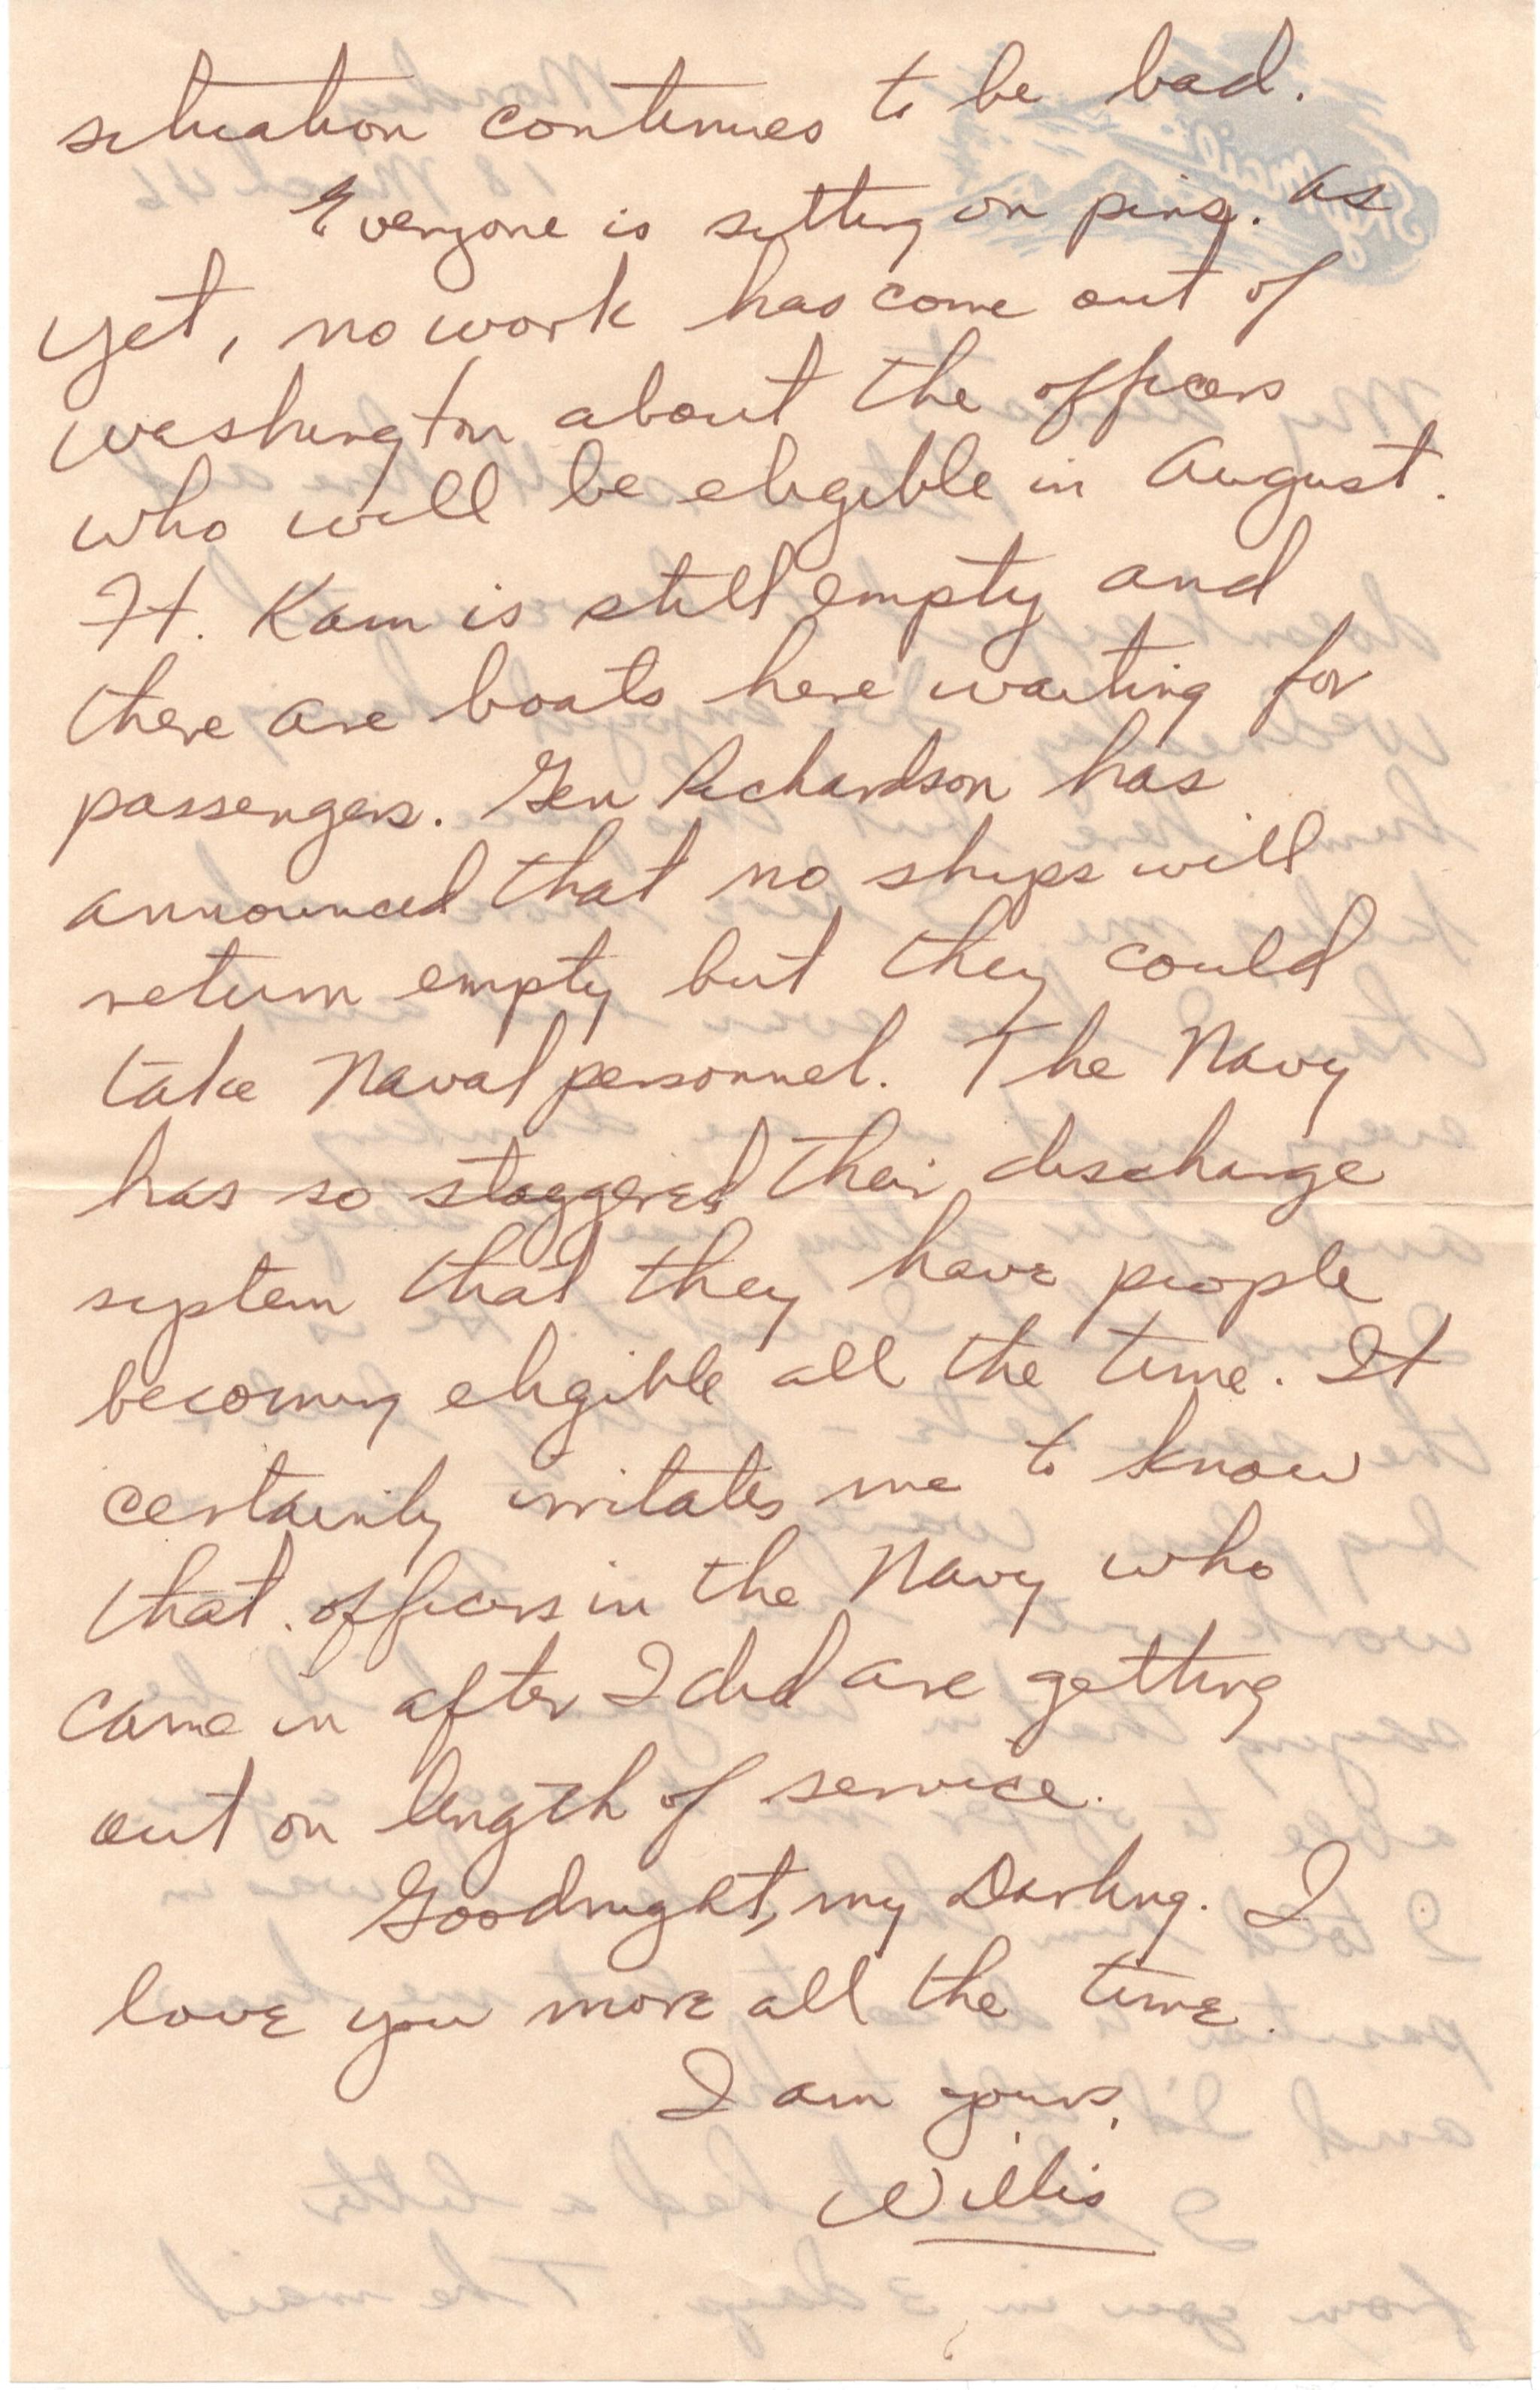 situation continues to be bad.
Everyone is sitting on pins. As
yet, no work has come out of
Washington about the officers
who will be eligible in August.
Ft. Kam is still empty and
there are boats here waiting for
passengers. Gen Richardson has
announced that no ships will
return empty but they could
take Naval personnel. The Navy
has so staggered their discharge
system that they have people
becoming eligible all the time. It
certainly irritates me to know
that officers in the Navy who
came in after I did are getting
out on length of service.
Goodnight, my Darling. I
love you more all the time.
I am yours,
Willis